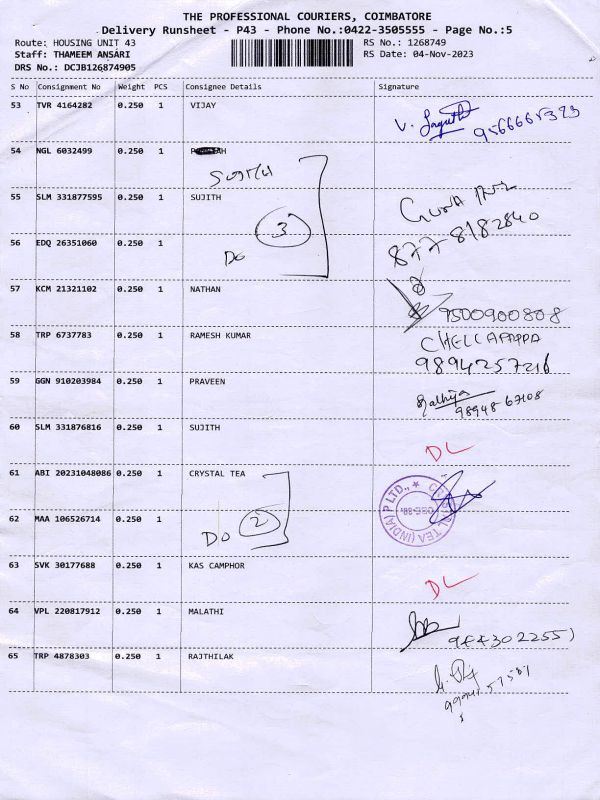 THE PROFESSIONAL COURIERS, COIMBATORE
Delivery Runsheet - P43 - Phone No.:0422-3505555 - Page No.:5
Route: HOUSING UNIT 43
Staff: THAMEEM ANSARI
DRS No.: DCJB126874905
RS No.: 1268749
RS Date: 04-Nov-2023
S No Consignment No Weight PCS Consignee Details Signature
53 TVR 4164282 0.250 1 VIJAY
V. 9566665323
54 NGL 6032499 0.250 1
SUJITH
55 SLM 331877595 0.250 1 SUJITH
3
GUNA
8778182840
56 EDQ 26351060 0.250 1
Do
57 KCM 21321102 0.250 1 NATHAN
9500900808
58 TRP 6737783 0.250 1 RAMESH KUMAR
CHELLAPAPPA
9894257216
59 GGN 910203984 0.250 1 PRAVEEN
98948 67108
60 SLM 331876816 0.250 1 SUJITH
DL
61 ABI 20231048086 0.250 1 CRYSTAL TEA
CRYSTAL TEA (INDIA) P LTD.,
62 MAA 106526714 0.250 1
DO 2
63 SVK 30177688 0.250 1 KAS CAMPHOR
DL
64 VPL 220817912 0.250 1 MALATHI
65 TRP 4878303 0.250 1 RAJTHILAK